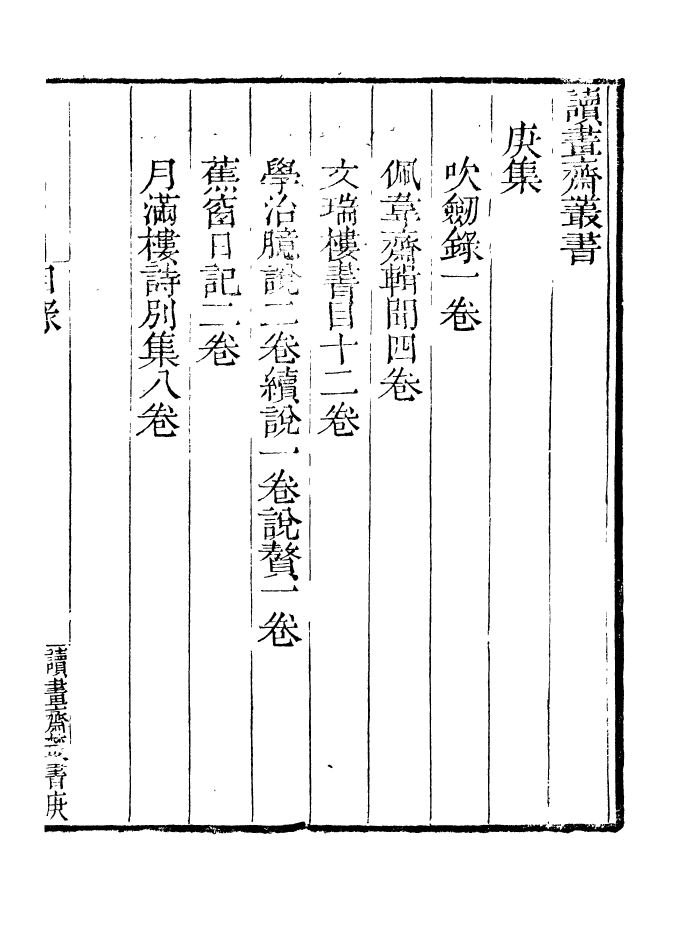 讀畫齋叢書
庚集
吹劒錄一卷
佩韋齋輯聞四卷
文瑞樓書目十二卷
學治臆說二卷續說一卷說贅一卷
蕉窗日記二卷
月滿樓詩別集八卷
目錄
讀畫齋叢書庚